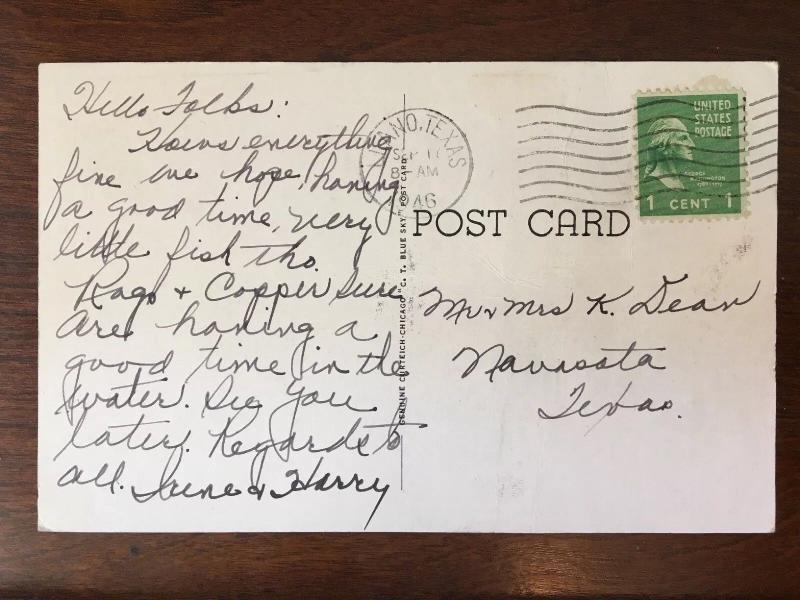 Hello Folks:
Hows everything
fine we hope, having
a good time, very
little fish tho.
Rags & Copper sure
are having a
good time in the
water. See you
later. Regards to
all. Irene & Harry
LLANO, TEXAS
SEP 17
8 AM
1946
GENUINE CURTEICH-CHICAGO "C. T. BLUE SKY" POST CARD
POST CARD
UNITED
STATES
POSTAGE
GEORGE
WASHINGTON
1 CENT 1
Mr & Mrs K. Dean
Navasota
Texas.